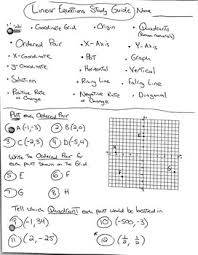 Linear Equations Study Guide Name
• Coordinate Grid • Origin • Quadrants
(Roman numerals)
• Ordered Pair • X-Axis • Y-Axis
• X-Coordinate • Plot • Graph
• Y-Coordinate • Horizontal • Vertical
• Solution • Rising Line • Falling Line
• Positive Rate of Change • Negative Rate of Change • Diagonal
Plot each Ordered Pair
① A (-1,-3) ② B (2,0)
③ C (-2,5) ④ D (-5,4)
Write the Ordered Pair for
each point shown on the Grid
⑤ E ⑥ F
⑦ G ⑧ H
Tell which Quadrant each point would be located in
⑨ (-1, 34) ⑩ (-500, -3)
⑪ (2, -25) ⑫ (½, ½)